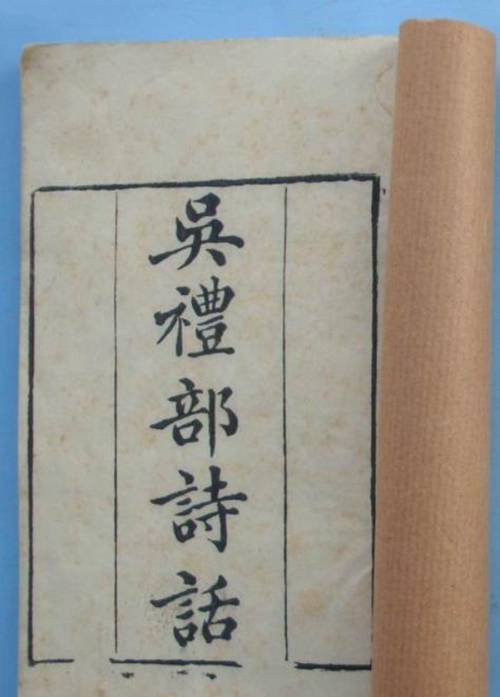 吳禮部詩話